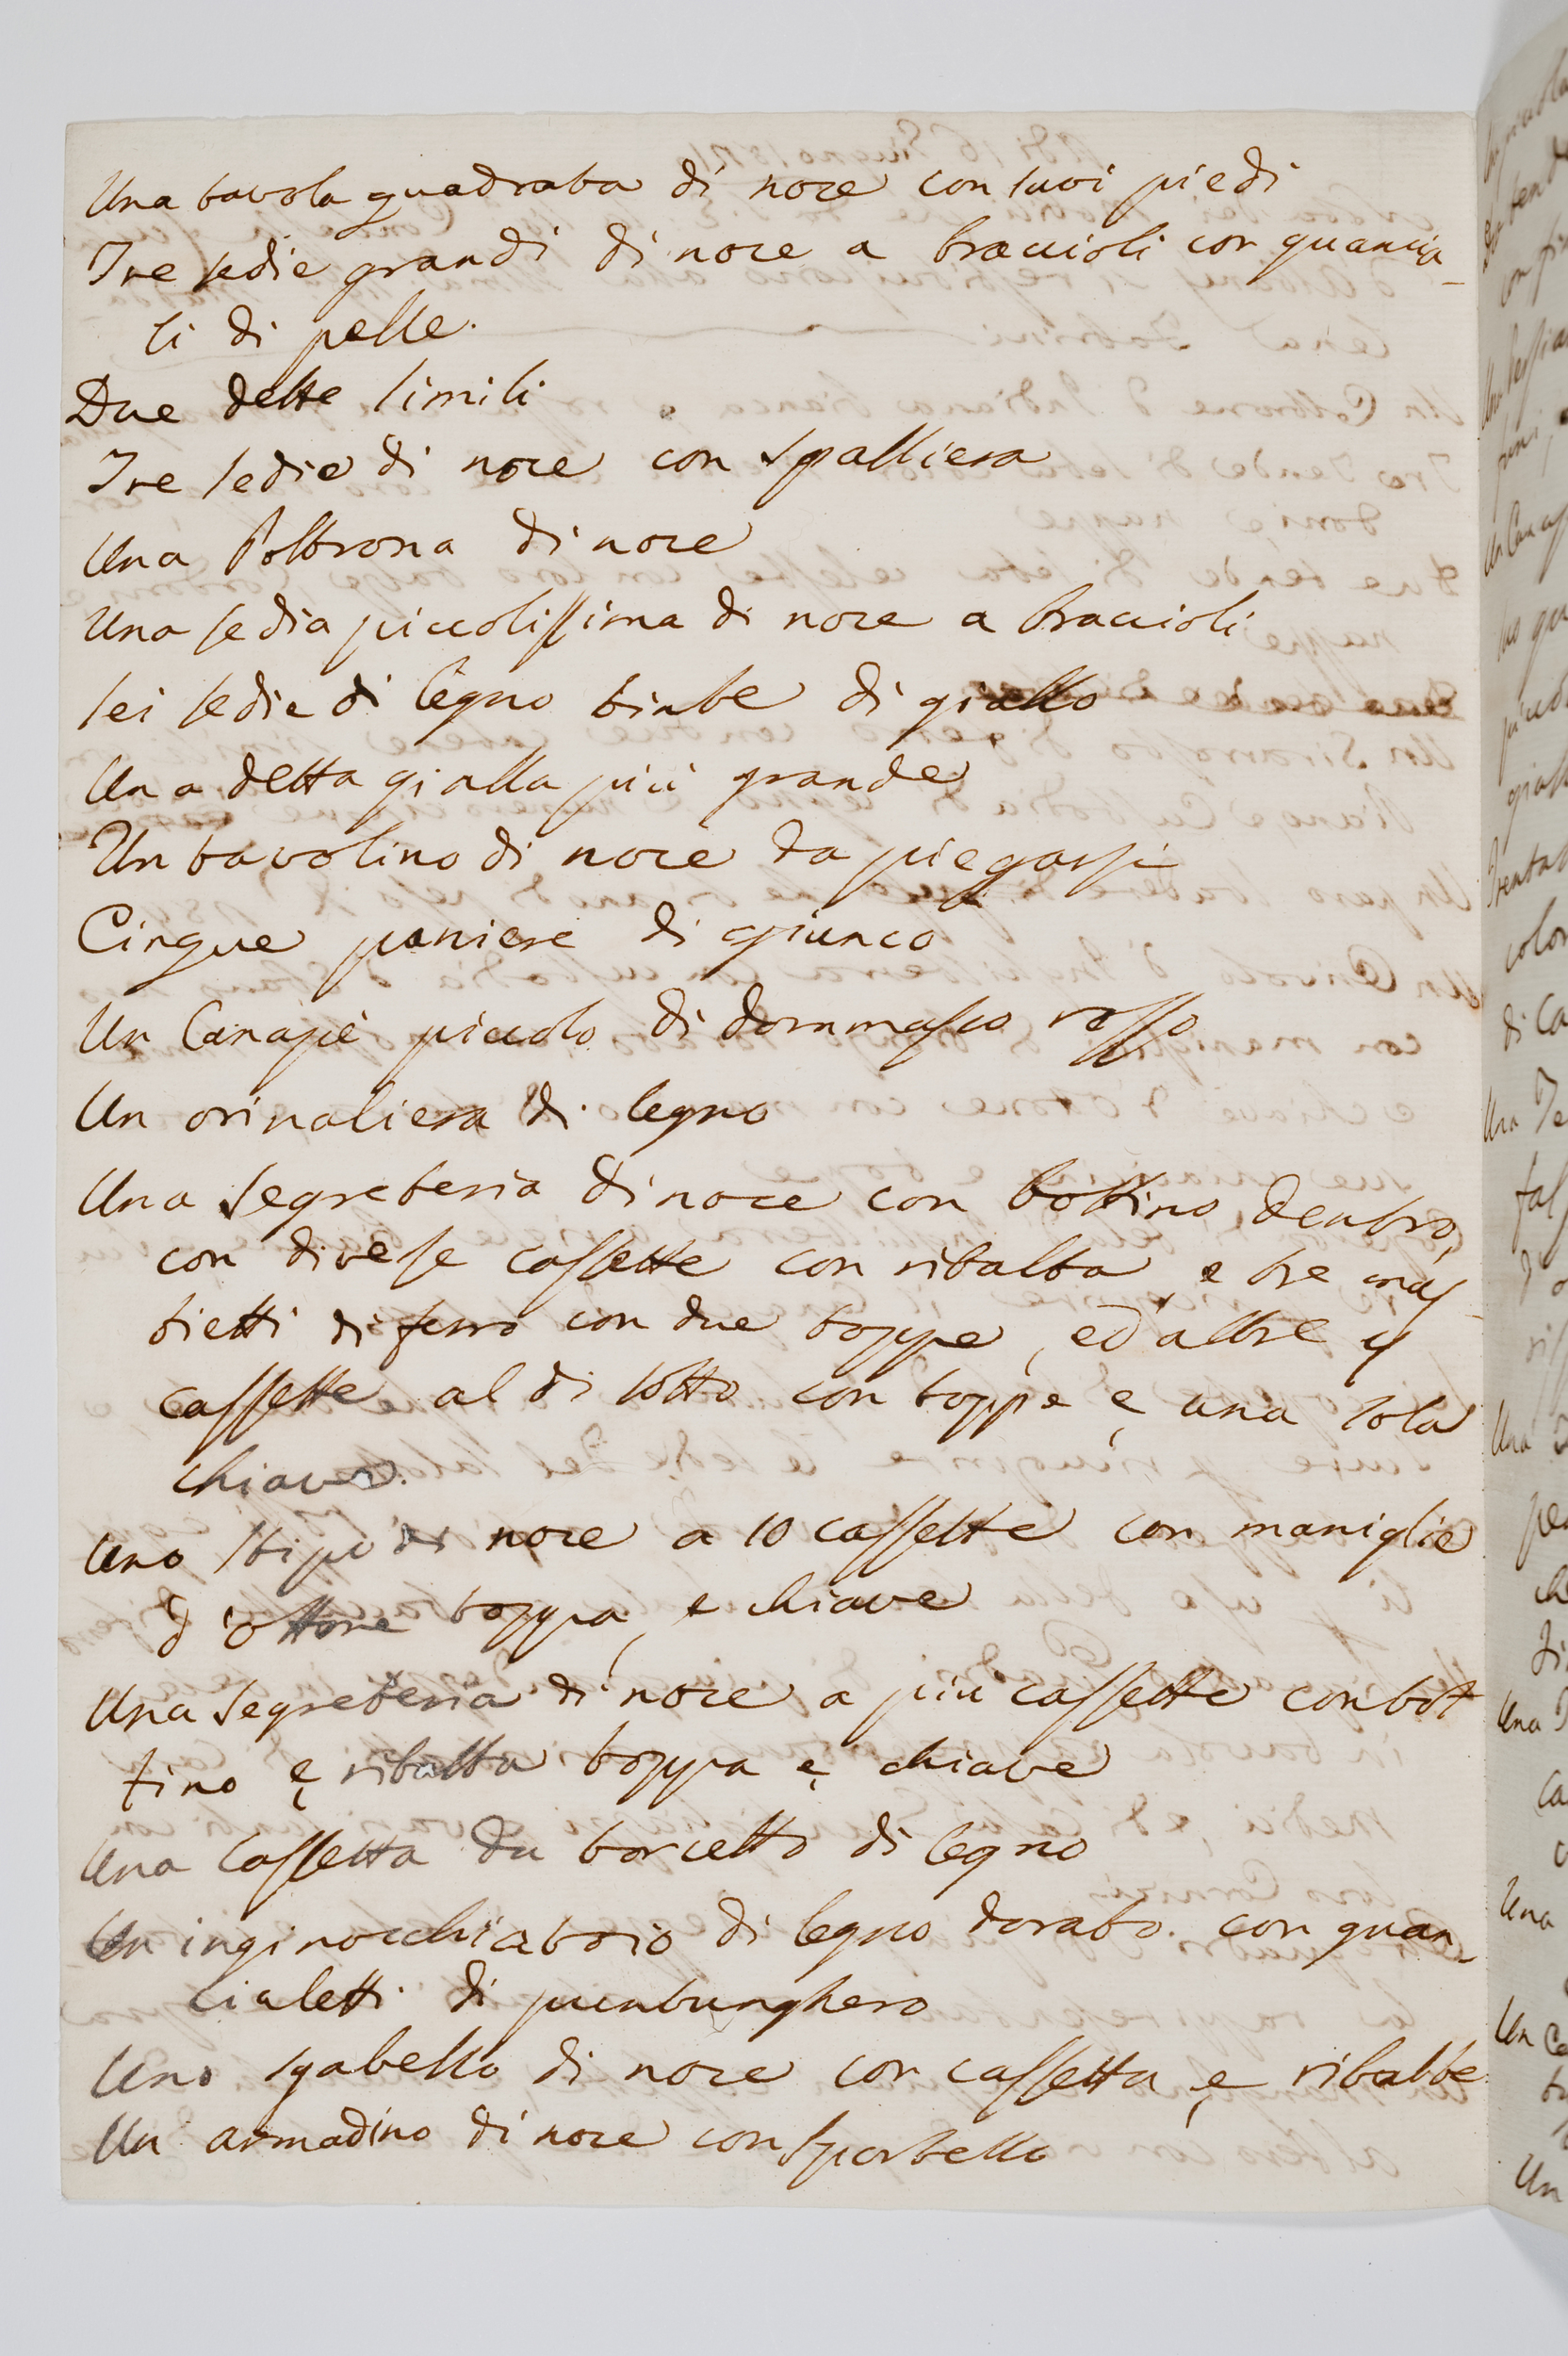 Una tavola quadrata di noce con suoi piedi
Tre sedie grandi di noce a braccioli con guancia-
li di pelle.
Due dette simili
Tre sedie di noce con spalliera
Una Poltrona di noce
Una sedia piccolissima di noce a braccioli
sei sedie di legno tinte di giallo
Una detta gialla più grande
Un tavolino di noce da piegarsi
Cinque paniere di giunco
Un Canapè piccolo di dommasco rosso
Un orinaliera di legno
Una segreteria di noce con bottino dentro,
con diverse cassette con ribalta, e tre mas-
tietti di ferro con due toppe, ed altre 4
cassette al di sotto con toppe e una sola
chiave.
Uno stipo di noce a 10 cassette con maniglie
d'ottone toppa, e chiave
Una segreteria di noce a più cassette con bot
tino e ribalta toppa e chiave
Una cassetta da torcetto di legno
Un inginocchiatoio di legno dorato con guan-
cialetti di puntunghero
Uno sgabello di noce con cassetta e ribalte
Un armadino di noce con sportello